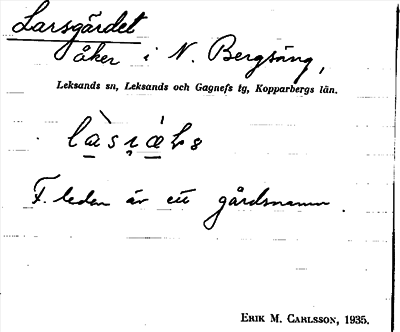 Larsgärdet
åker i N. Bergsäng,
Leksands sn, Leksands och Gagnefs tg, Kopparbergs län.
F. leden är ett gårdsnamn.
ERIK M. CARLSSON, 1935.